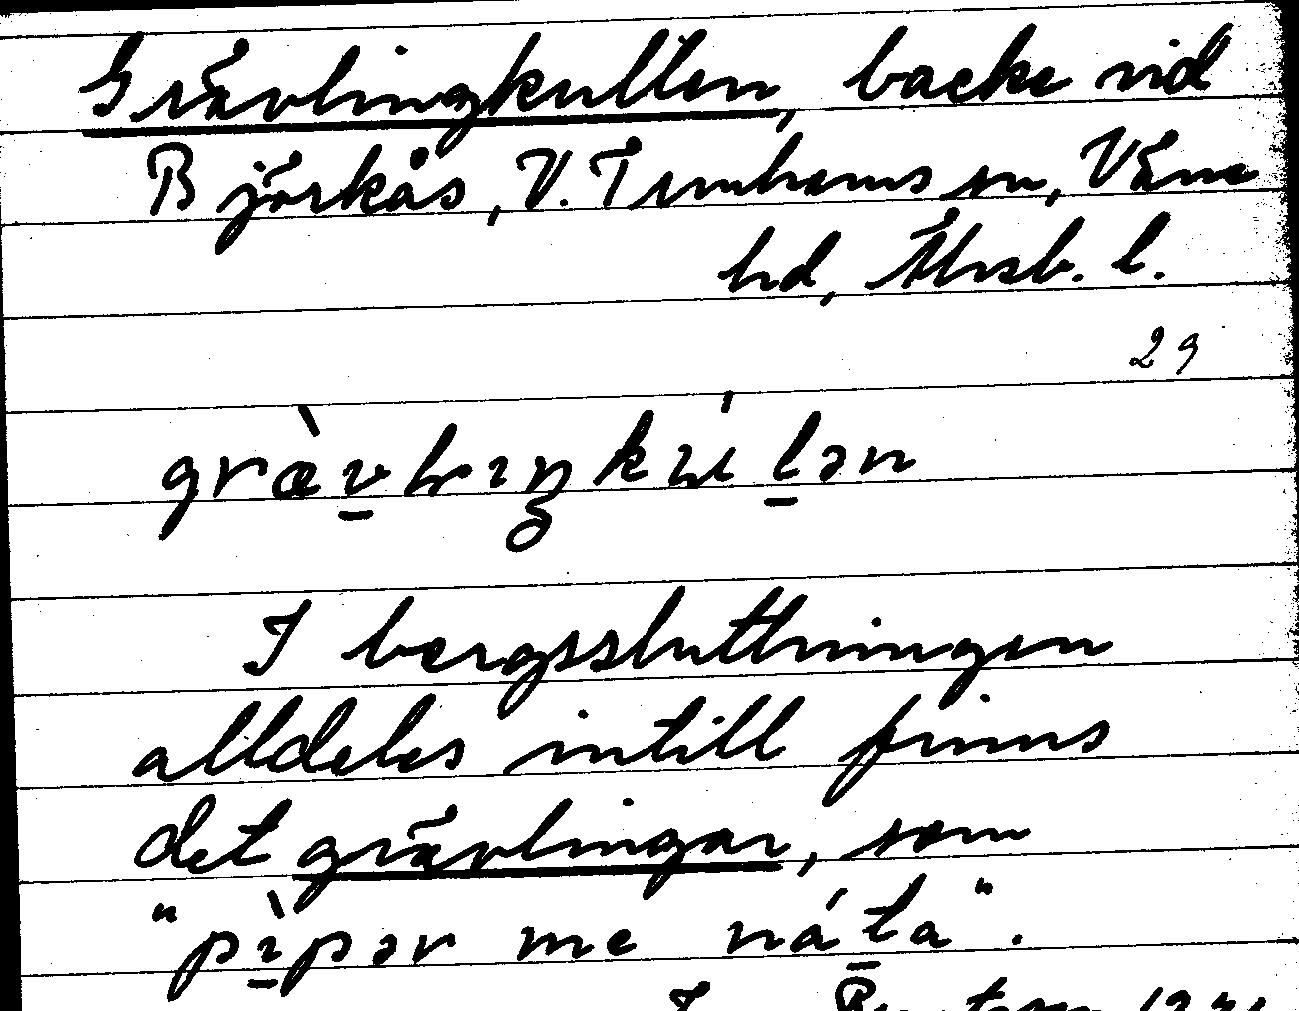 Grävlingkullen, backe vid
Björkås, V. Tunhems sn, Väne
hd, Älvsb. l.
29
græ̀v̲lıŋkúl̲ən
I bergssluttningen
alldeles intill finns
det grävlingar, som
"pı̲̀pər me nát̲a".